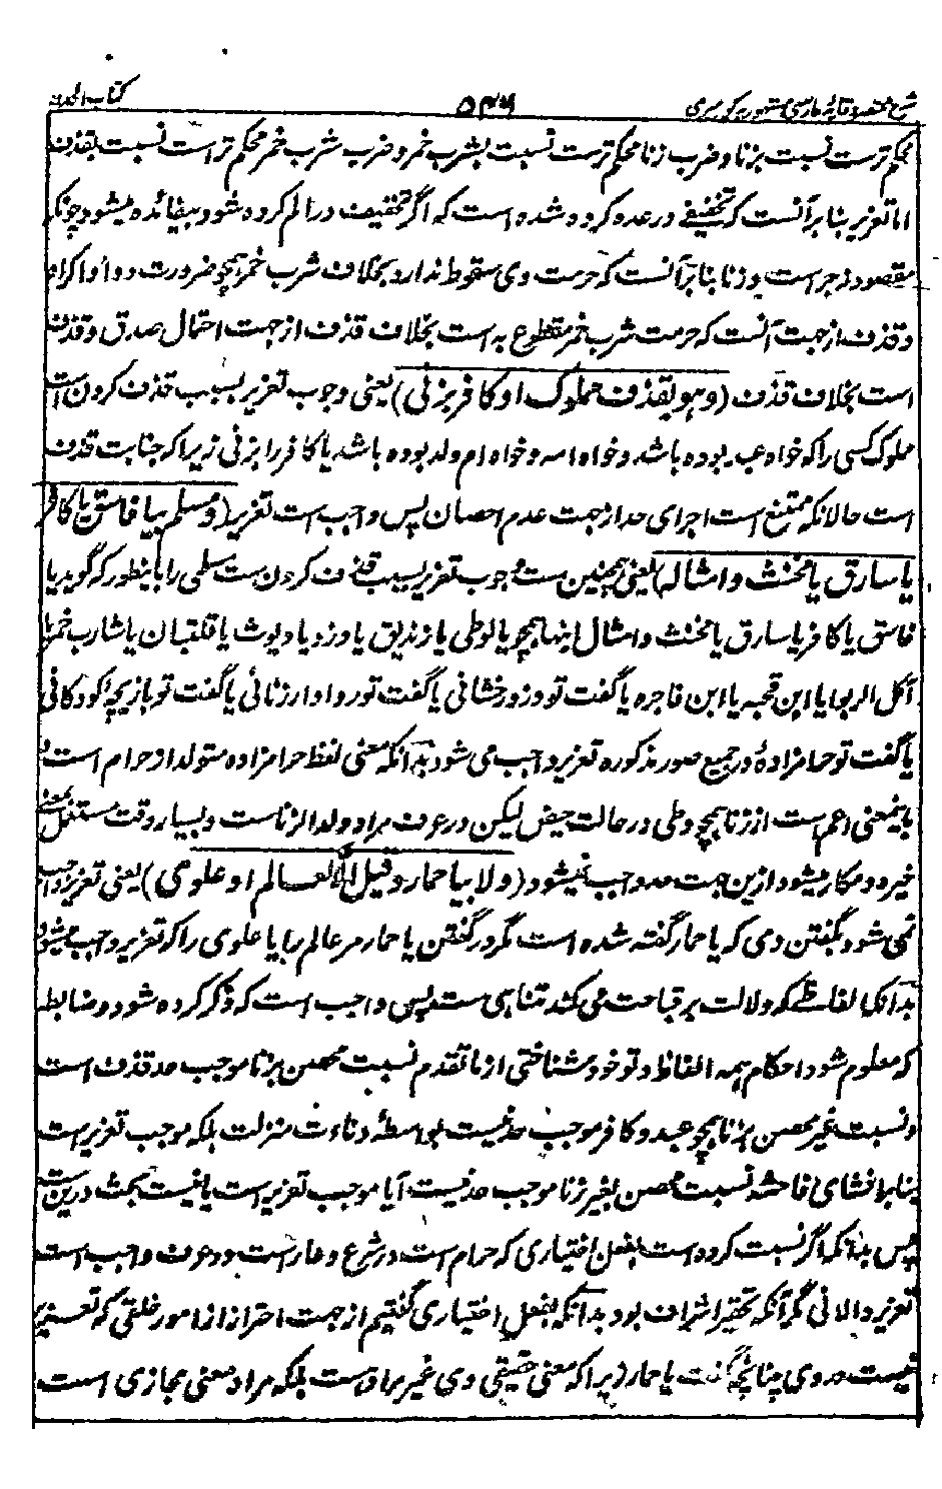 کتاب الحدود ۵۴۶ شرح مختصر وقایه فارسی مشهور به کوسری
محکم ترست نسبت بزنا و ضرب زنا محکم ترست نسبت بشرب خمر و ضرب شرب خمر محکم تراست نسبت بقذف
اما تعزیر بنا بر آنست که تخفیفے در عدد کرده شده است که اگر تخفیف در الم کرده شود بیفائده میشود چونکه
مقصود زجر است و زنا بنا بر آنست که حرمت وی سقوط ندارد بخلاف شرب خمر همچو ضرورت دوا و اکراه
و قذف از جهت آنست که حرمت شرب خمر مقطوع به است بخلاف قذف از جهت احتمال صدق و قذف
است بخلاف قذف (وهو بقذف مملوک او کافر بزنی) یعنی وجوب تعزیر بسبب قذف کردن است
مملوک کسی را که خواه عبد بوده باشد و خواه امه و خواه ام ولد بوده باشد یا کافر را بزنی زیرا که جنایت قذف
است حالانکه ممتنع است اجرای حد از جهت عدم احصان پس واجب است تعزیر (و مسلم بیا فاسق یا کافر
یا سارق یا مخنث وامثاله) یعنی همچنین ست وجوب تعزیر بسبب قذف کردن ست مسلمی را باینطور که گوید یا
فاسق یا کافر یا سارق یا مخنث و امثال اینها همچو یا لوطی یا زندیق یا دزد یا دیوث یا قلتبان یا شارب خمر یا
آکل الربوا یا ابن قحبه یا ابن فاجره یا گفت تو دزد رخشانی یا گفت تو روادار زنائی یا گفت تو بازیچه کودکانی
یا گفت تو حرامزادهٔ در جمیع صور مذکوره تعزیر واجب می شود بدانکه معنی لفظ حرامزاده متولد از حرام است و
باینمعنی اعم ست از زنا همچو وطی در حالت حیض لیکن در عرف مراد ولد الزناست و بسیار وقت مستعمل بمعنی
خیره و مکار میشود ازین جهت حد واجب نمیشود (ولا بیا حمار وقیل الا لعالم او علوی) یعنی تعزیر واجب
نمی شود بگفتن وی که یا حمار گفته شده است مگر در گفتن یا حمار مر عالم را یا علوی را که تعزیر واجب میشود
بدانکه الفاظے که دلالت بر قباحت می کند تناهی ست پس واجب است که ذکر کرده شود و ضابطه
که معلوم شود احکام همه الفاظ و تو خود شناختی از ما تقدم نسبت محصن بزنا موجب حد قذف است
و نسبت غیر محصن بزنا همچو عبد و کافر موجب حد نیست بواسطهٔ دناءت منزلت بلکه موجب تعزیر ست
بنا بر افشای فاحشه نسبت محصن بغیر زنا موجب حد نیست آیا موجب تعزیر است یا نیست بحث درین ست
پس بدانکه اگر نسبت کرده است بفعل اختیاری که حرام است در شرع و عار ست در عرف واجب است
تعزیر والا نی مگر آنکه تحقیر اشراف بود بدانکه بفعل اختیاری گفتیم از جهت احتراز از امور خلقی که تعزیر
نیست در وی چنانچه گفت یا حمار زیرا که معنی حقیقی وی غیر مراد ست بلکه مراد معنی مجازی است